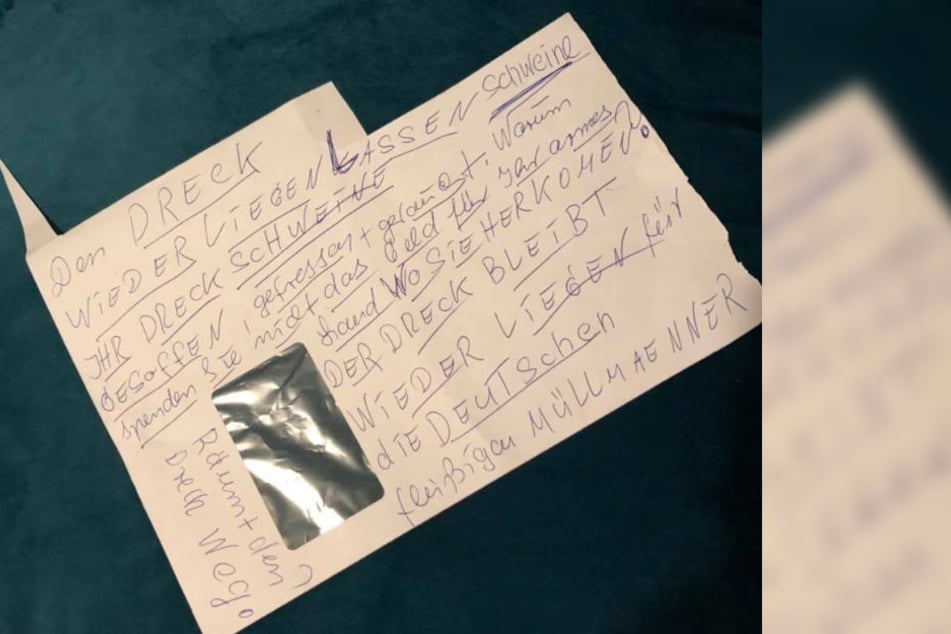 Den DRECK
WIEDER LIEGEN LASSEN Schweine
IHR DRECK SCHWEINE
GESOFFEN, gefressen + geraucht, Warum
spenden Sie nicht das Geld für Ihr armes
Land WO SIE HERKOMEN?
DER DRECK BLEIBT
WIEDER LIEGEN für
die DEUTSCHEN
fleißigen MÜLLMAENNER
Räumt den
Dreck Weg